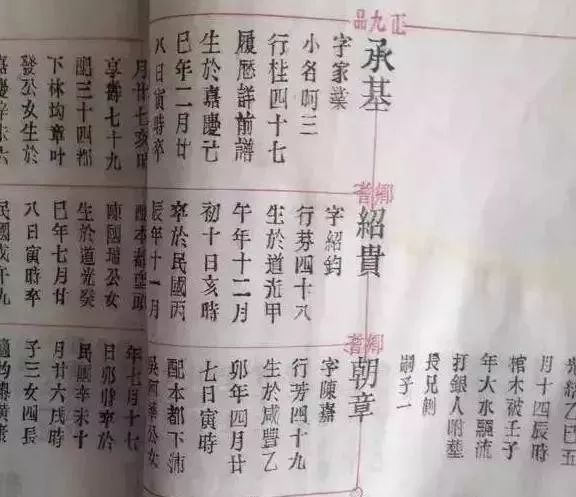 光緒乙巳五
月十四辰時
棺木被壬子
年大水飄流
打銀人附墓
長兄
嗣子一
正九品
承基
字家業
小名啊三
行桂四十七
履歷詳前譜
生於嘉慶己
巳年二月廿
八日寅時卒
月廿七亥時
享壽七十九
配三十四都
下林均章叶
發公女生於
嘉慶辛未六
鄉耆
紹貴
字紹鈞
行芬四十八
生於道光甲
午年十二月
初十日亥時
卒於民國丙
辰年十一月
配本都頭
陳國瑞公女
生於道光癸
巳年七月廿
八日寅時卒
民國戊午九
鄉耆
朝章
字陳嘉
行芳四十九
生於咸豐乙
卯年四月廿
七日寅時
配本都下沛
吳阿公女
年七月十七
日卯時卒於
民國辛未十
月廿六戌時
子三女四長
適均